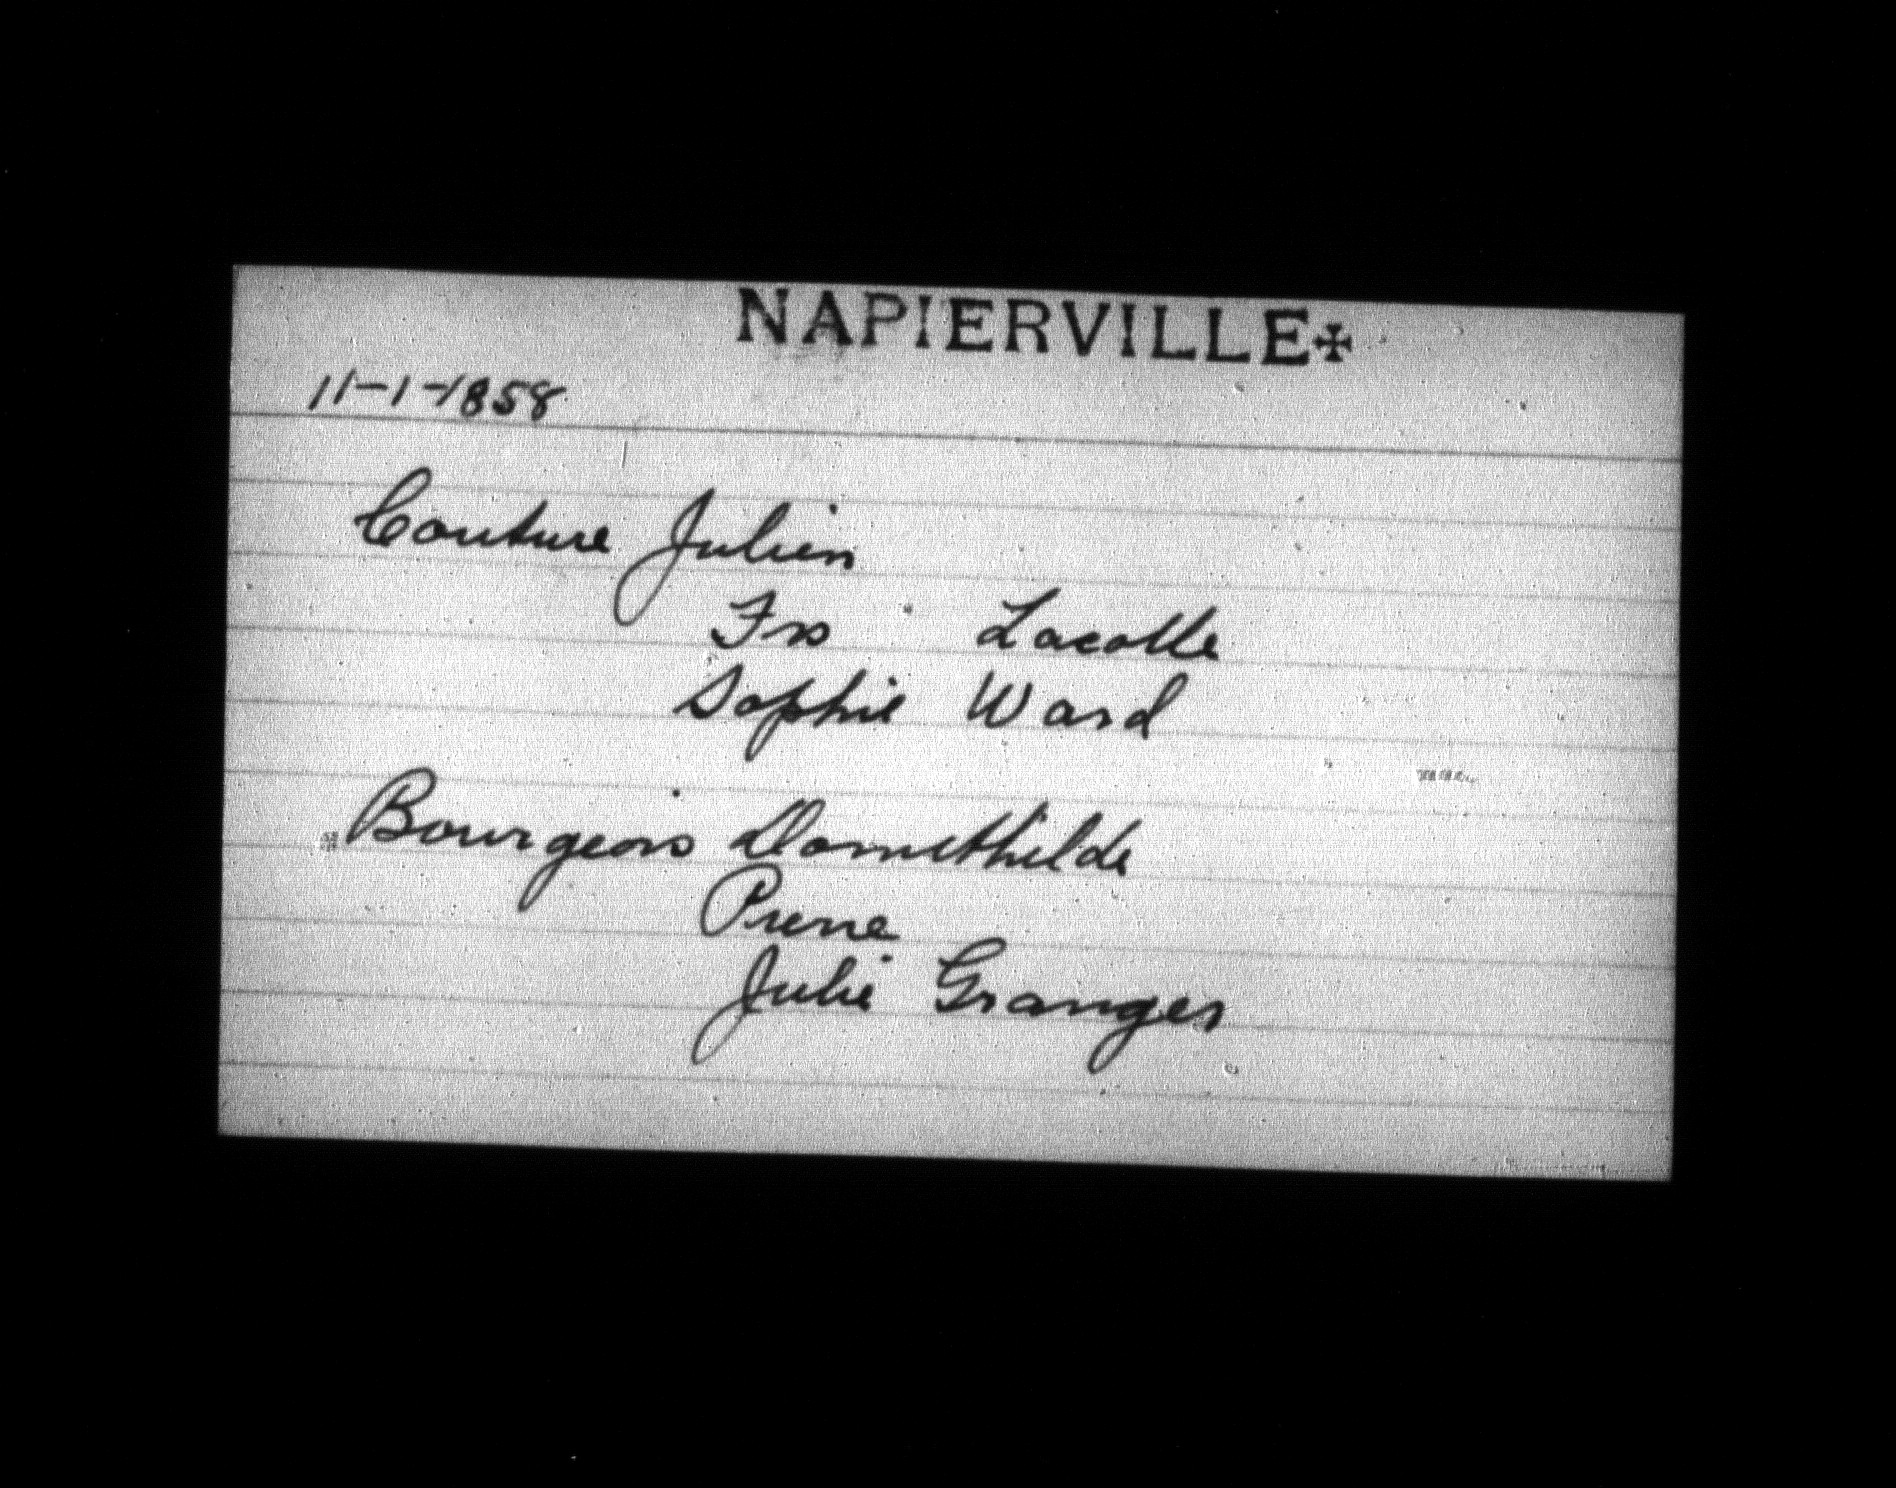 NAPIERVILLE✠
11-1-1858
Couture Julien
Frs Lacolle
Sophie Ward
Bourgeois Domithilde
Pierre
Julie Granger